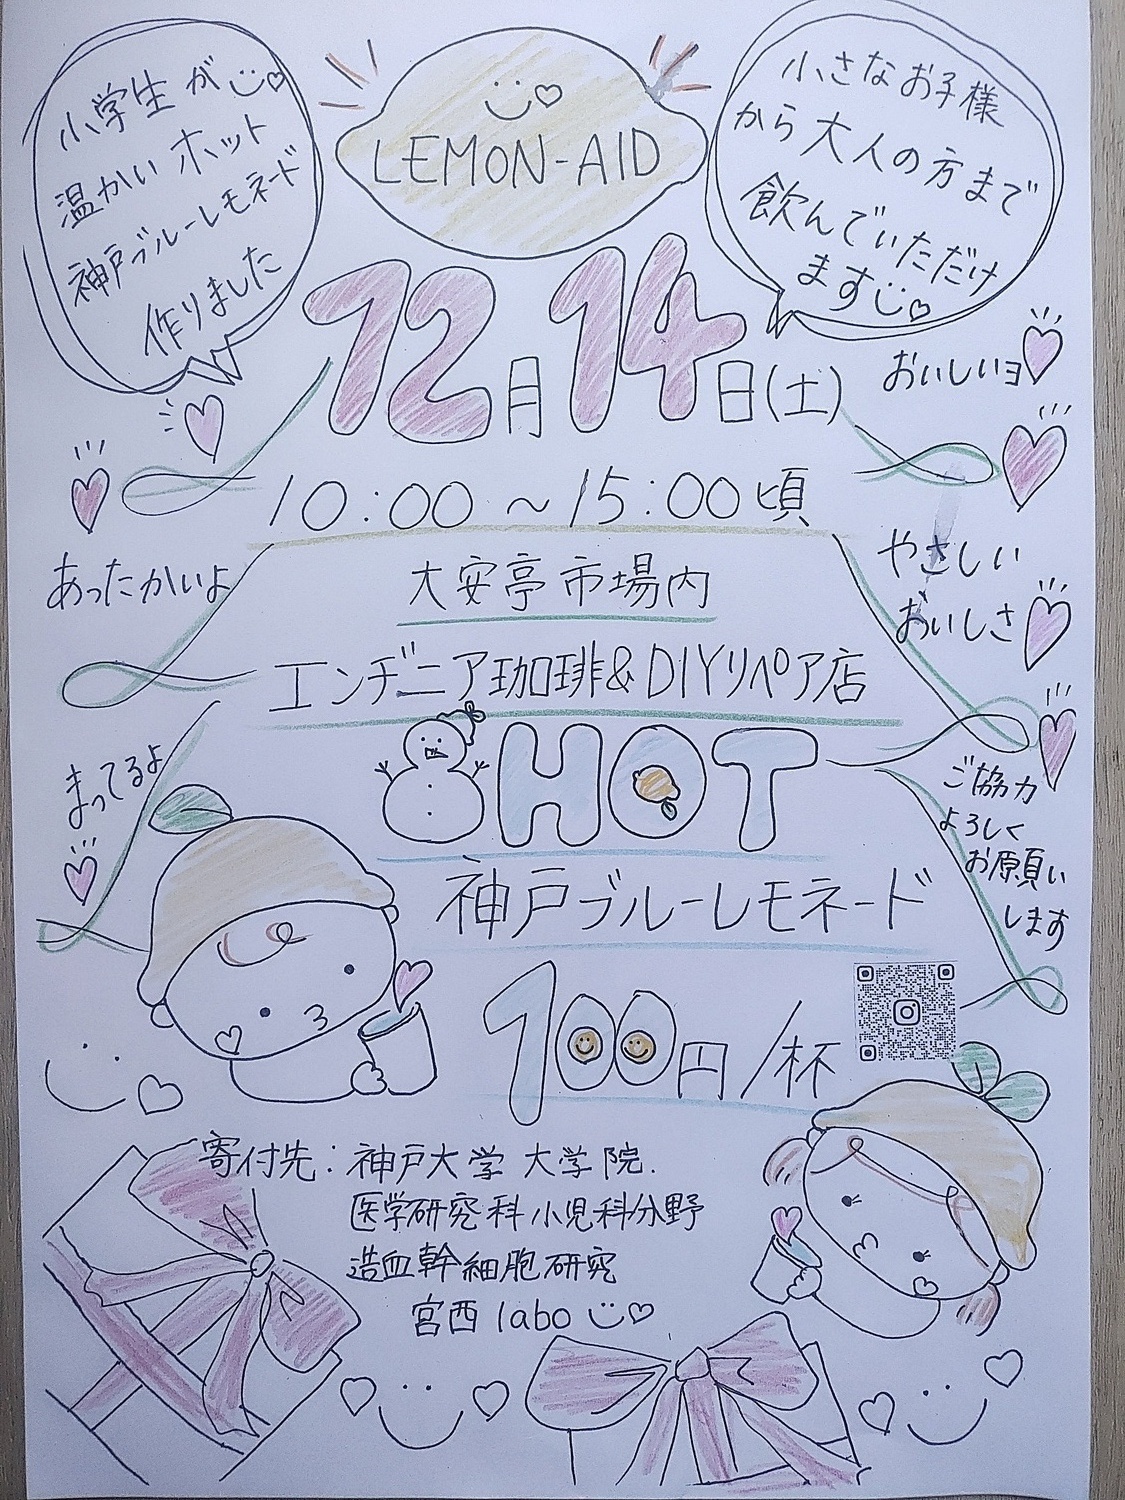 小学生が
温かいホット
神戸ブルーレモネード
作りました
LEMON-AID
小さなお子様
から大人の方まで
飲んでいただけ
ます
12月14日(土)
おいしいヨ
10:00~15:00頃
あったかいよ
大安亭市場内
やさしい
おいしさ
エンヂニア珈琲&DIYリペア店
まってるよ
HOT
ご協力
よろしく
お願い
します
神戸ブルーレモネード
100円/杯
寄付先:神戸大学 大学院
医学研究科小児科分野
造血幹細胞研究
宮西labo